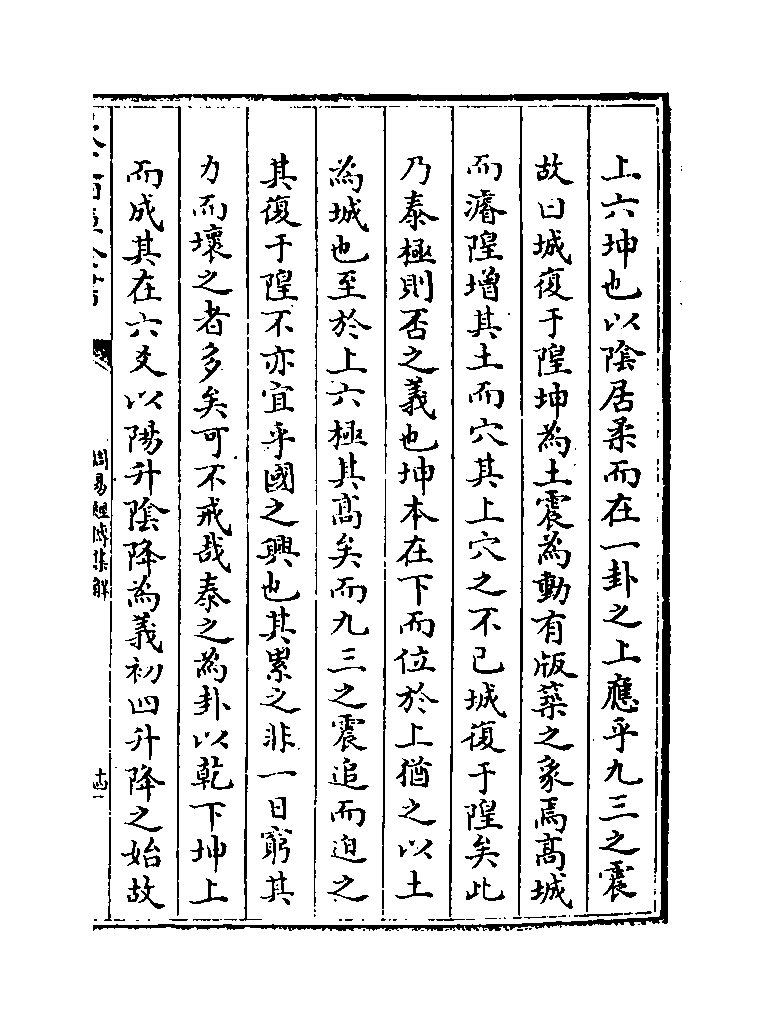 上六坤也以陰居柔而在一卦之上應乎九三之震
故曰城復于隍坤為土震為動有版築之象焉髙城
而濬隍增其土而穴其上穴之不已城復于隍矣此
乃泰極則否之義也坤本在下而位於上猶之以土
為城也至於上六極其髙矣而九三之震追而迫之
其復于隍不亦宜乎國之興也其累之非一日窮其
力而壞之者多矣可不戒哉泰之為卦以乾下坤上
而成其在六爻以陽升陰降為義初四升降之始故
周易經傳集解